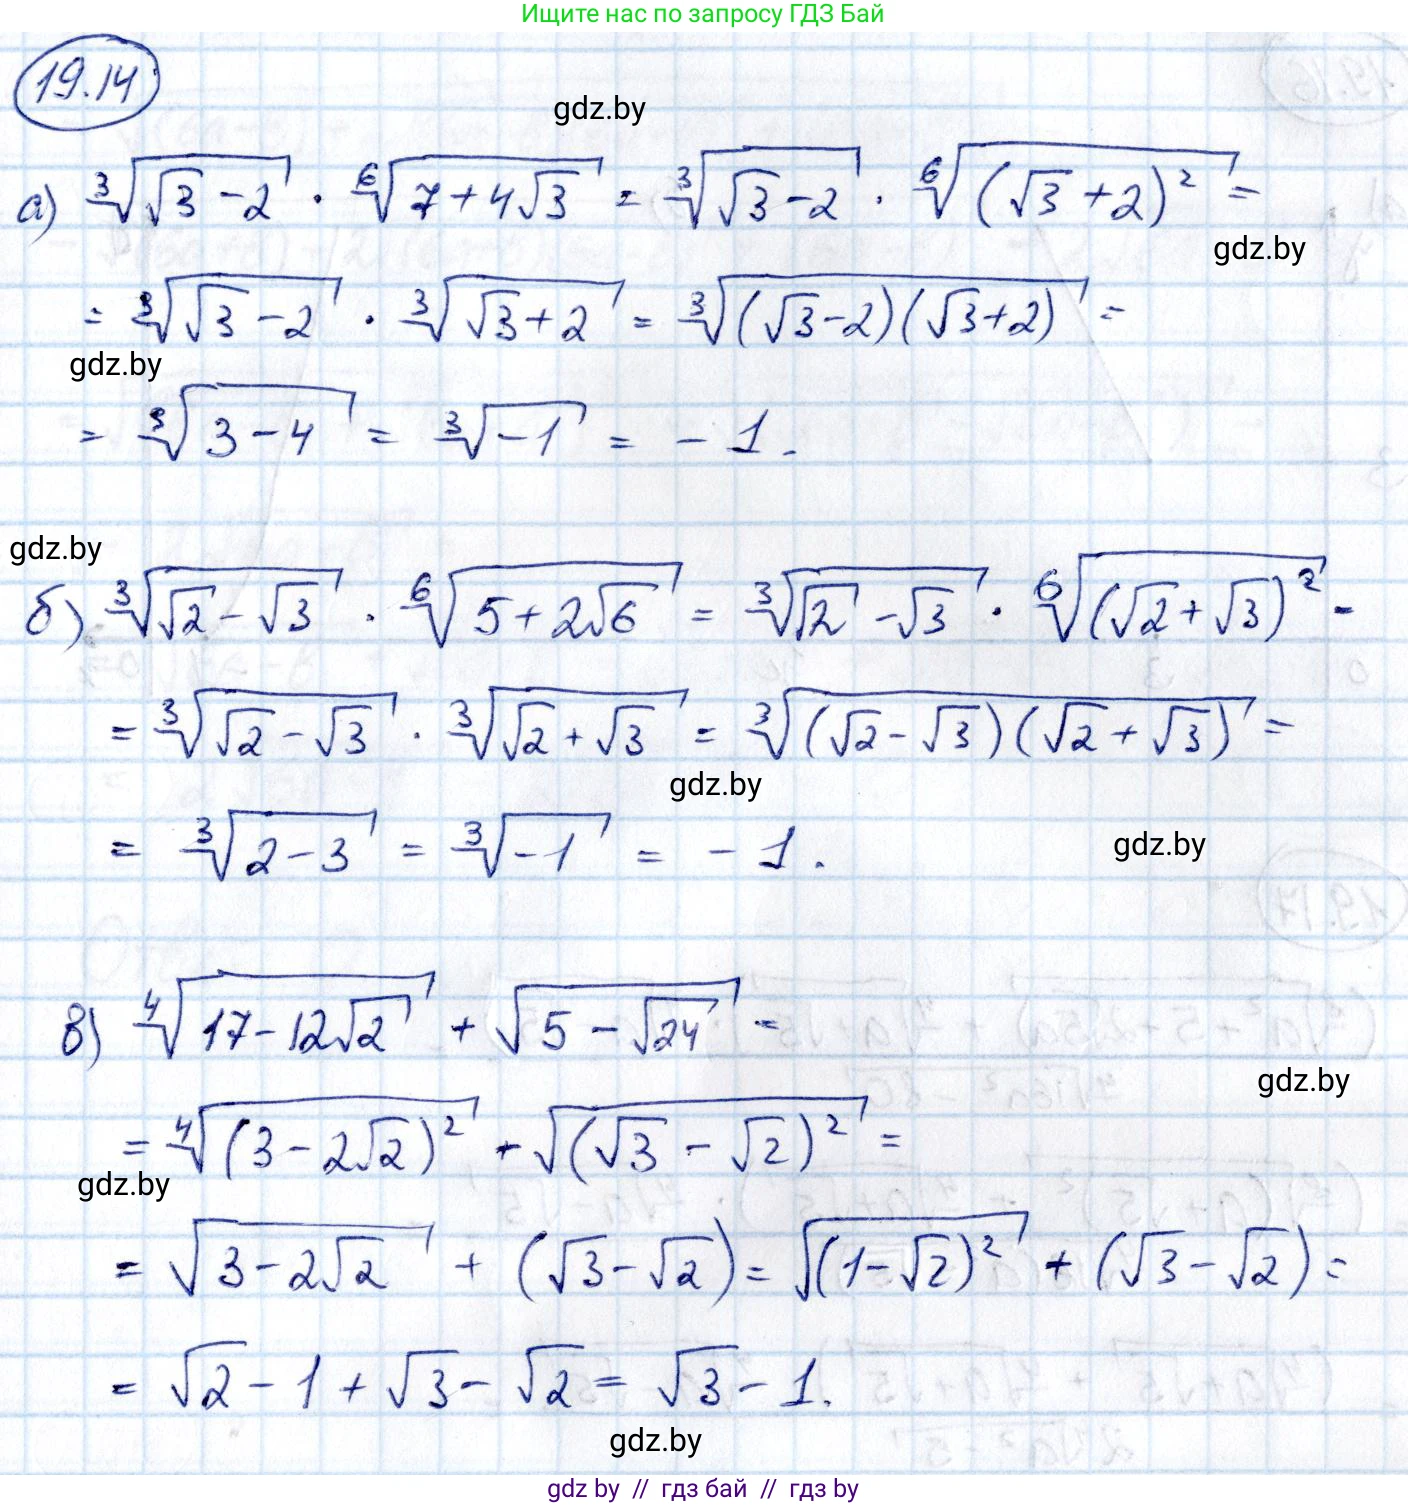 Ищите нас по запросу ГДЗ Бай
19.14
gdz.by
а) ∛(√3 - 2) · ⁶√(7 + 4√3) = ∛(√3 - 2) · ⁶√((√3 + 2)²) =
gdz.by
= ∛(√3 - 2) · ∛(√3 + 2) = ∛((√3 - 2)(√3 + 2)) =
gdz.by
= ∛(3 - 4) = ∛(-1) = - 1.
gdz.by
б) ∛(√2 - √3) · ⁶√(5 + 2√6) = ∛(√2 - √3) · ⁶√((√2 + √3)²) =
= ∛(√2 - √3) · ∛(√2 + √3) = ∛((√2 - √3)(√2 + √3)) =
gdz.by
= ∛(2 - 3) = ∛(-1) = - 1.
gdz.by
в) ⁴√(17 - 12√2) + √(5 - √24) =
gdz.by
= ⁴√((3 - 2√2)²) + √((√3 - √2)²) =
gdz.by
= √(3 - 2√2) + (√3 - √2) = √((1 - √2)²) + (√3 - √2) =
= √2 - 1 + √3 - √2 = √3 - 1.
gdz.by
gdz by // гдз бай // гдз by